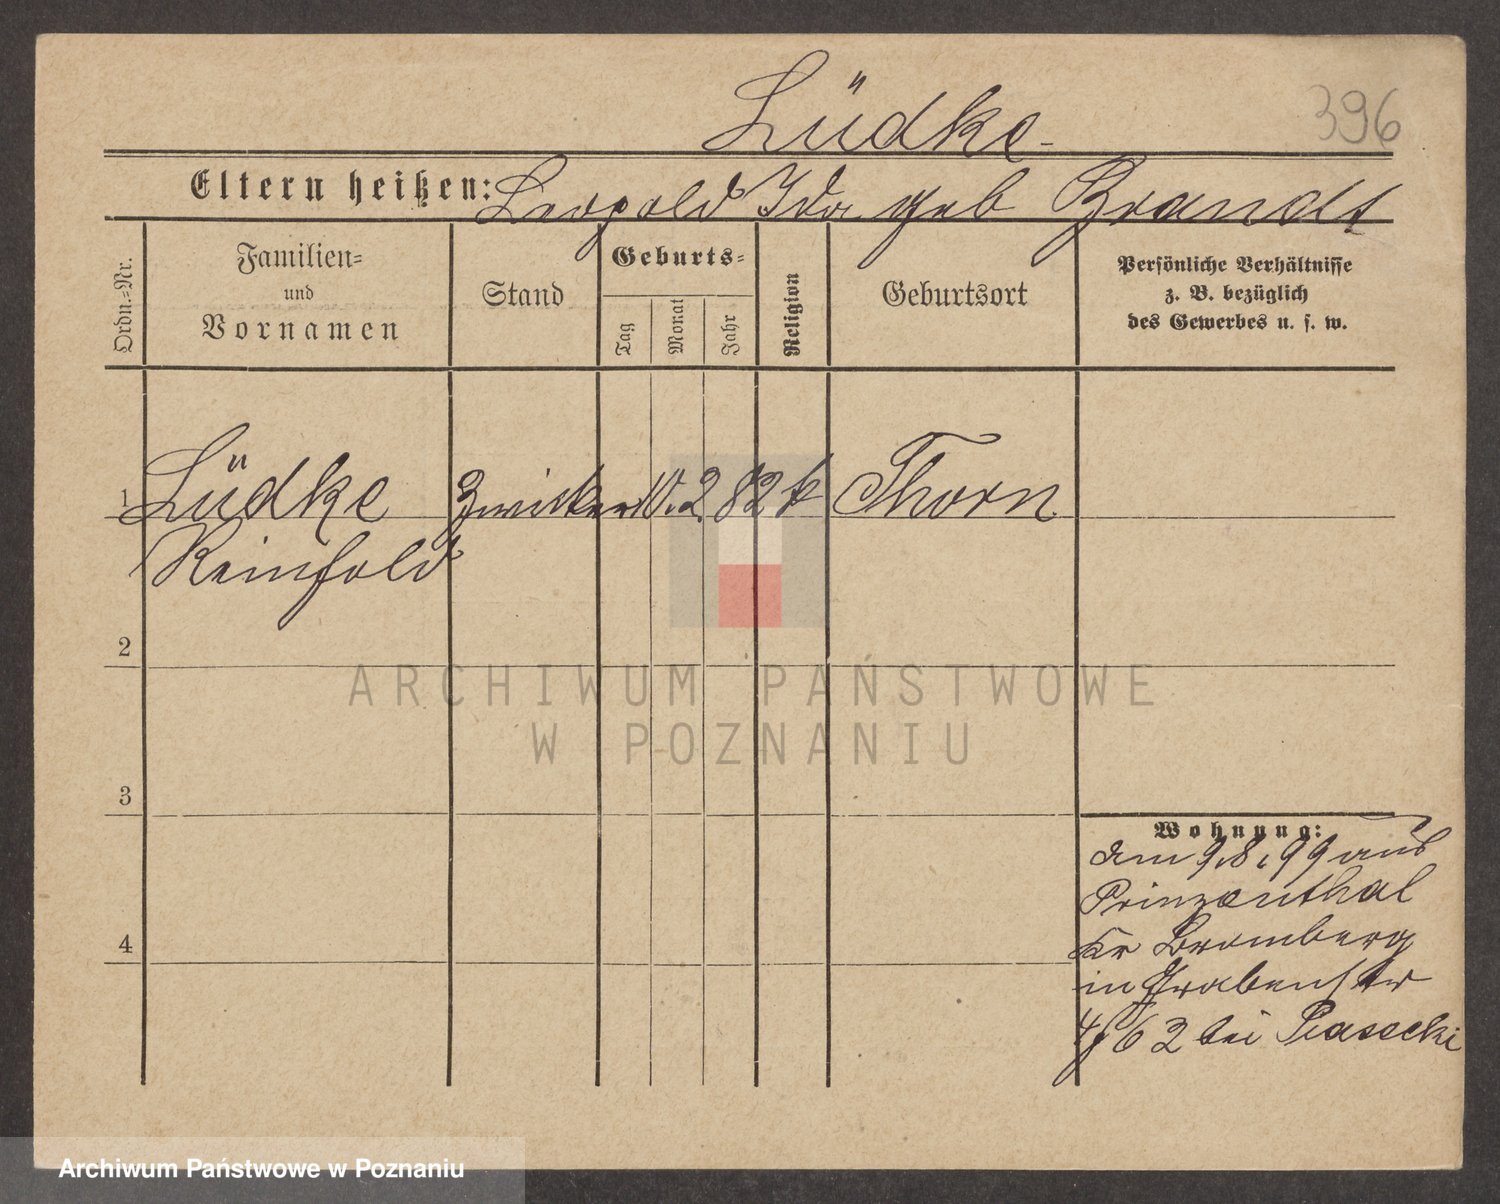 396
Lüdke
Eltern heißen: Leopold Ida geb Brandt
Ordn.=Nr.
Familien=
und
Vornamen
Stand
Geburts=
Tag
Monat
Jahr
Religion
Geburtsort
Persönliche Verhältnisse
z. B. bezüglich
des Gewerbes u. s. w.
1 Lüdke Zwicker 10. 2. 82 k Thorn
Reinhold
2
3
4
Wohnung:
am 9.8.99 aus
Prinzenthal
Kr Bromberg
in Grabenstr
bei Piasecki
ARCHIWUM PAŃSTWOWE
W POZNANIU
Archiwum Państwowe w Poznaniu